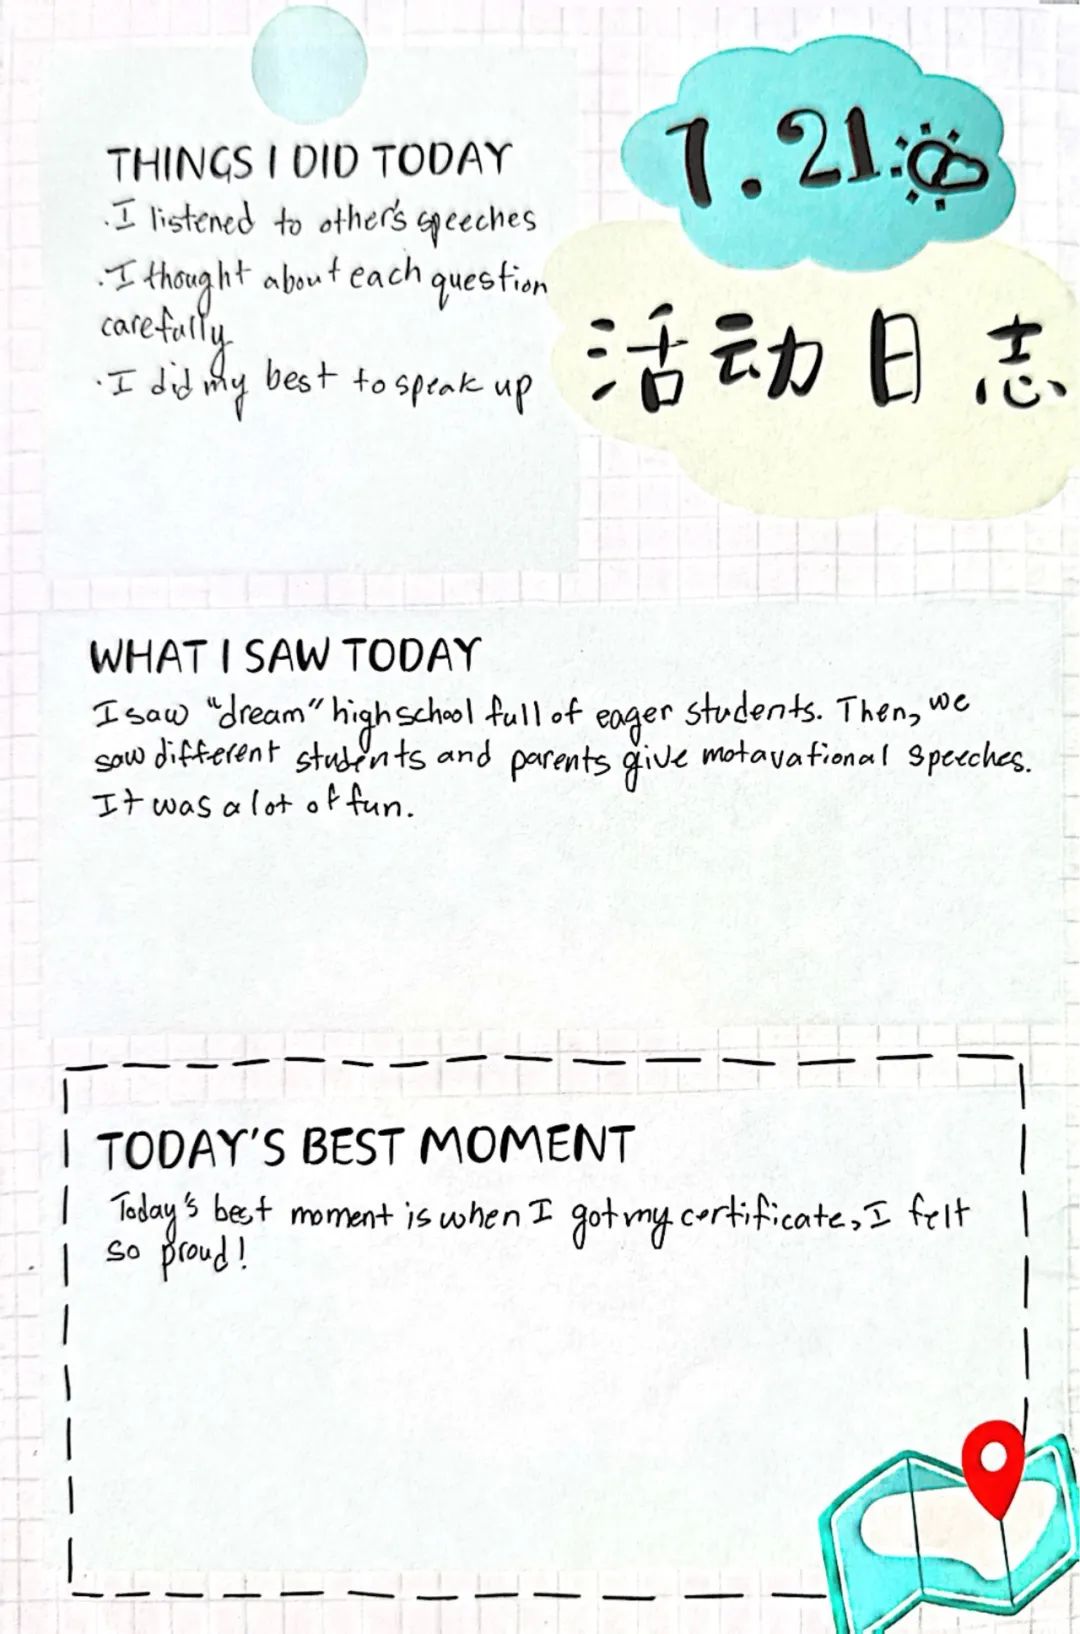 7.21
活动日志
THINGS I DID TODAY
·I listened to other's speeches
·I thought about each question
carefully
·I did my best to speak up
WHAT I SAW TODAY
I saw "dream" high school full of eager students. Then, we
saw different students and parents give motavational speeches.
It was a lot of fun.
TODAY'S BEST MOMENT
Today's best moment is when I got my certificate, I felt
so proud!